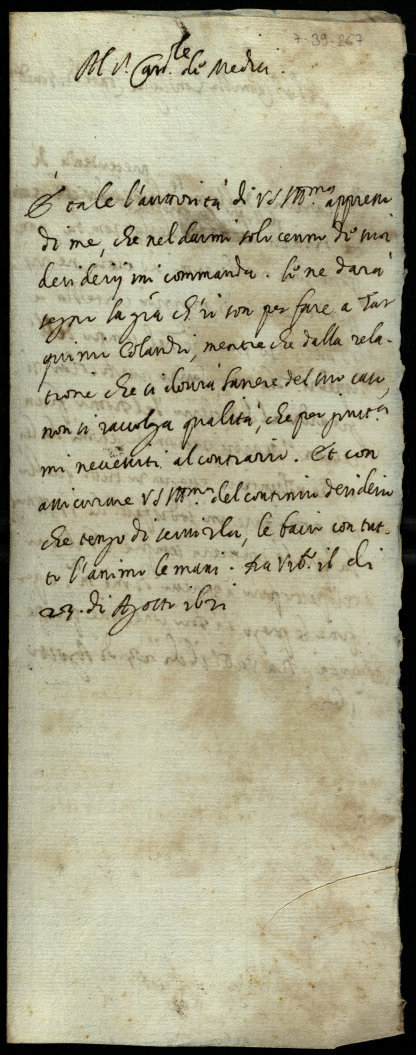 7-39-267
Al S.r Card.le de Medici.
È tale l'auttorità di VS Ill.ma appresso
di me, che nel darmi solo cenno de suoi
desiderij mi commanda. Se ne darà
segno la gra ch'io son per fare a Tar
quinio Colandri, mentre che dalla rela-
tione che si dovrà havere del suo caso,
non si raccolga qualità, che per giustia
mi necessiti al contrario. Et con
assicurare VS Ill.ma del continuo desiderio
che tengo di servirla, le bacio con tut-
to l'animo le mani. Da Urb.o il di
23. di Agosto 1621